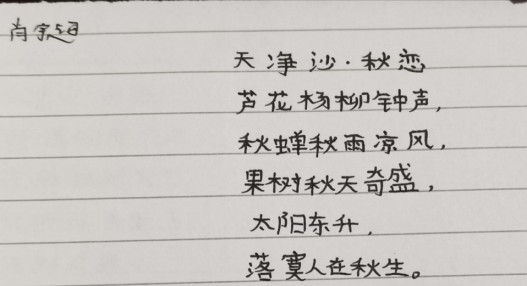 天净沙·秋恋
芦花杨柳钟声，
秋蝉秋雨凉风，
果树秋天奇盛，
太阳东升，
落寞人在秋生。